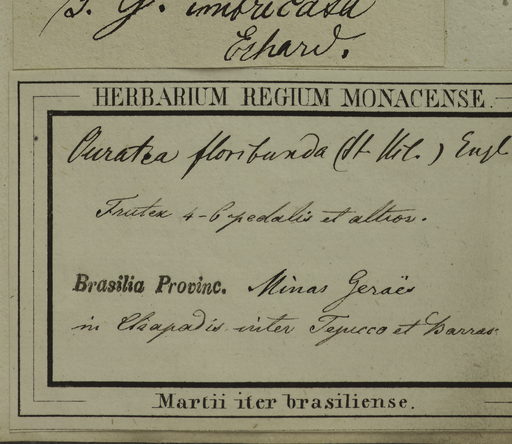 imbricata
Erhard.
HERBARIUM REGIUM MONACENSE.
Ouratea floribunda (St. Hil.) Engl
Frutex 4-6 pedalis et altior.
Brasilia Provinc. Minas Geraës
in Chapadis inter Tejucco et Barras
Martii iter brasiliense.